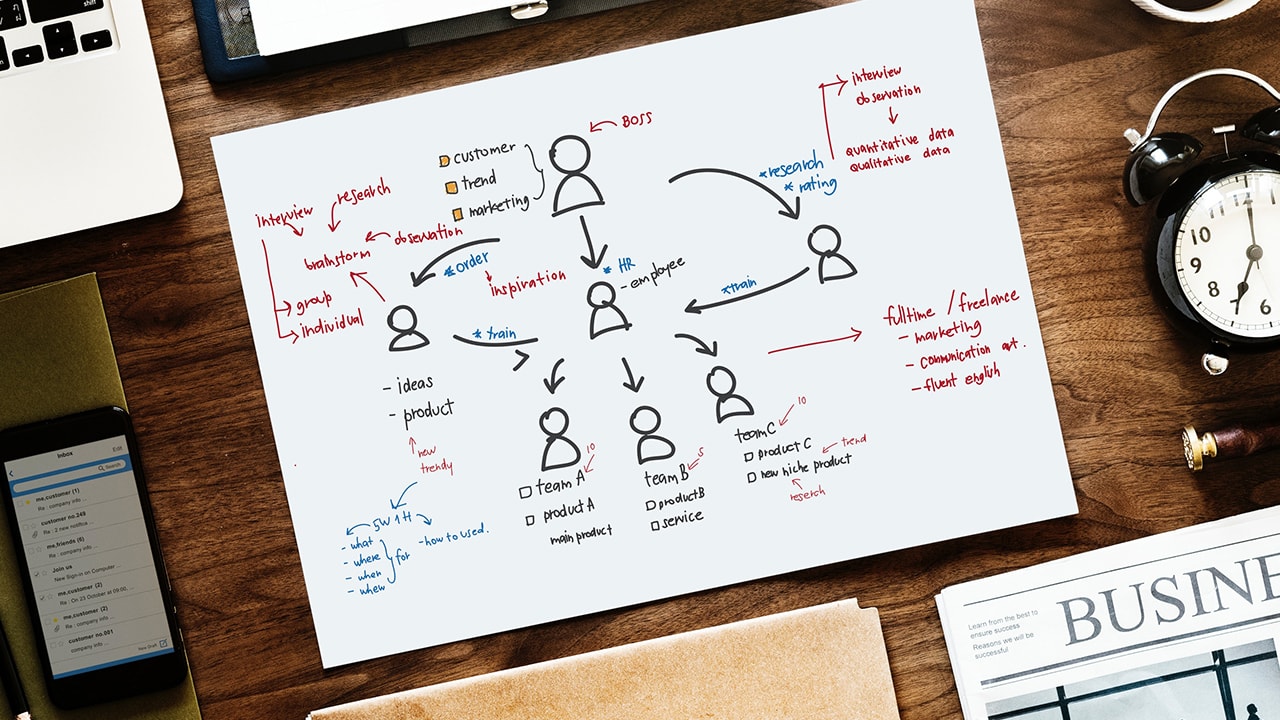 BOSS
customer
trend
marketing
interview
observation
quantitative data
qualitative data
*research
* rating
research
interview
observation
brainstorm
group
individual
*order
inspiration
* HR
- employee
*train
* train
- ideas
- product
new
trendy
5W1H
- what
- where
- when
- whew
for
- how to used.
team A
10
product A
main product
team B
5
product B
service
team C
10
product C
trend
new niche product
reserch
fulltime / freelance
- marketing
- communication art.
- fluent english
shift
Inbox
Edit
Search
me,customer (1)
Re : company info ...
customer no.249
Re : 2 new notifice ...
me,friends (5)
Re : company info ...
Join us
New Sign-in on Computer ...
me,customer (2)
Re : On 23 October at 09:00, ...
me,customer (2)
Re : company info ...
customer no.001
company info ...
New draft
11
10
9
8
7
6
Learn from the best to
ensure success
Reasons we will be
successful
BUSINE